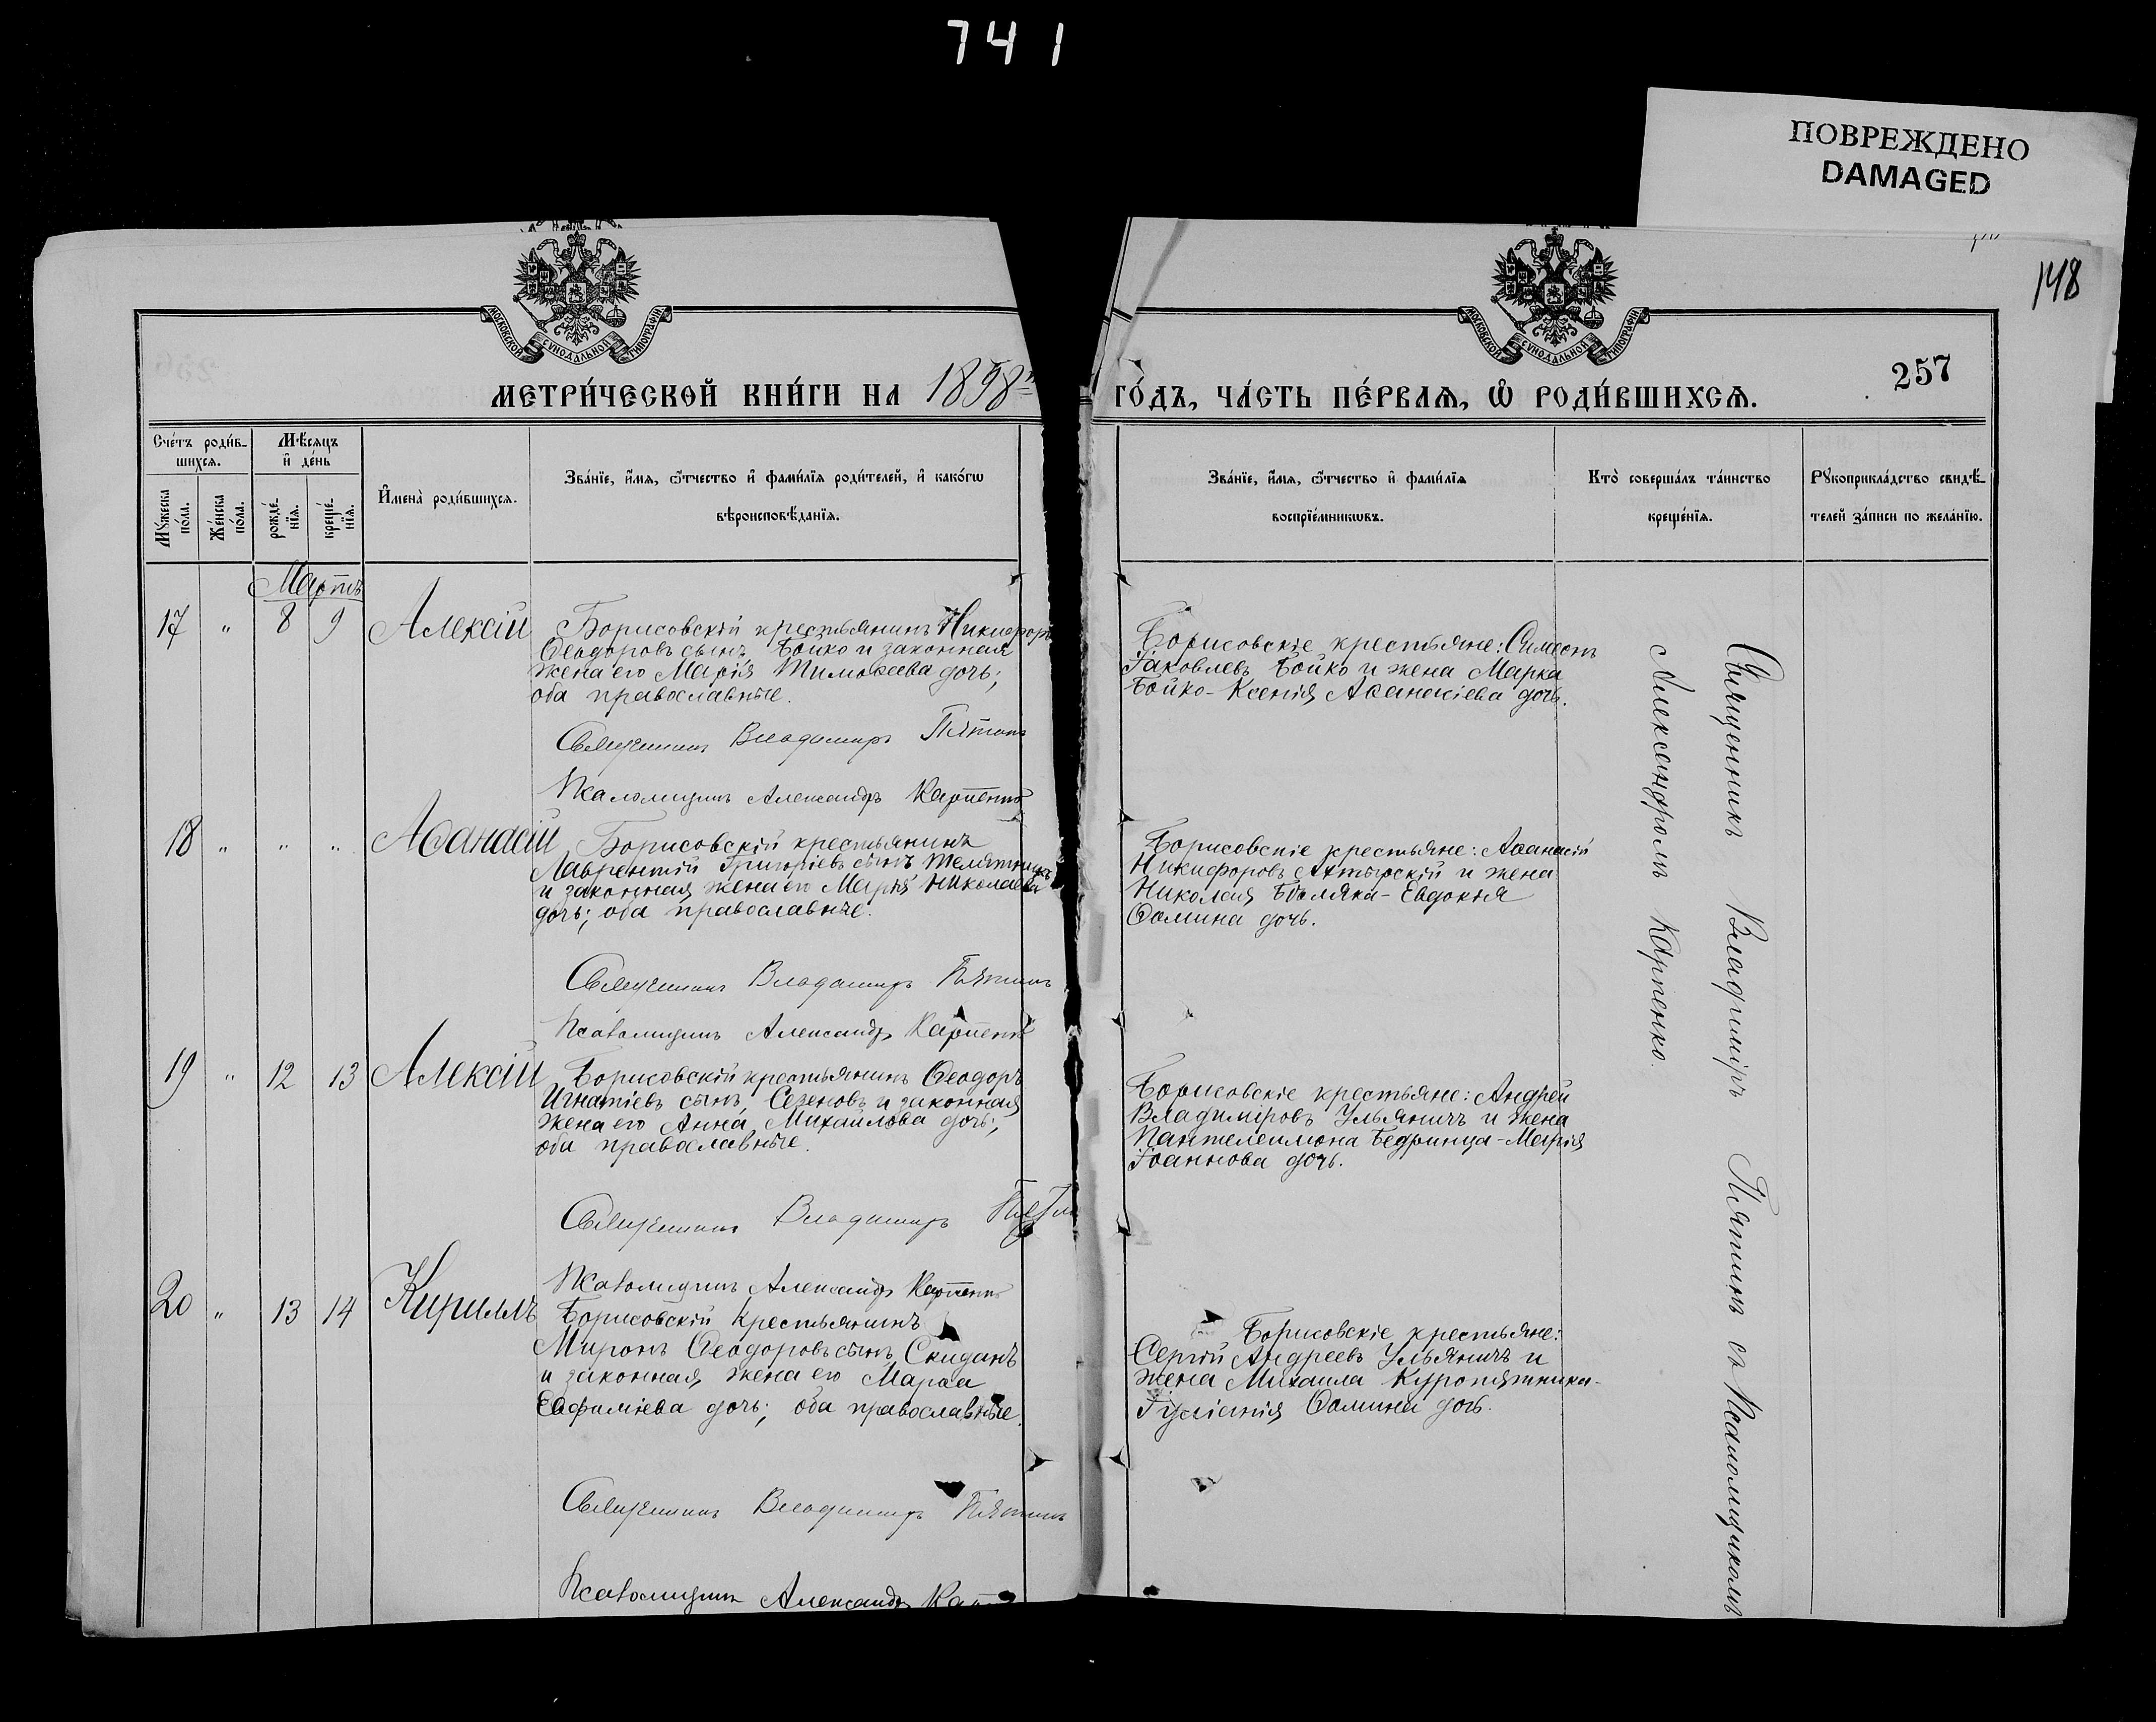 741
ПОВРЕЖДЕНО
DAMAGED
148
257
МОСКОВСКОЙ СУНОДАЛЬНОЙ ТИПОГРАФІИ
МОСКОВСКОЙ СУНОДАЛЬНОЙ ТИПОГРАФІИ
МЕТРИ́ЧЕСКОЙ КНИ́ГИ НА 1898й ГО́ДЪ, ЧА́СТЬ ПЕ́РВАѦ, Ѡ РОДИ́ВШИХСѦ.
Сче́тъ роди́в-
шихсѧ.
Мꙋ́жеска по́ла.
Же́нска по́ла.
Мѣ́сѧцъ
и҆ де́нь
рожде́-
нїѧ.
креще́-
нїѧ.
И҆мена̀ роди́вшихсѧ.
Зва́нїе, и҆́мѧ, ѻ҆́тчество и҆ фами́лїѧ роди́телей, и҆ како́гѡ
вѣроисповѣ́данїѧ.
Зва́нїе, и҆́мѧ, ѻ҆́тчество и҆ фами́лїѧ
воспрїе́мникѡвъ.
Кто̀ соверша́лъ та́инство
креще́нїѧ.
Рꙋкоприкла́дство свидѣ́-
телей за́писи по жела́нїю.
Мартъ
17 " 8 9 Алексій
Борисовскій крестьянинъ Никифоръ
Ѳеодоровъ сынъ Бойко и законная
жена его Марія Тимоѳеева дочь;
оба православные.
Священникъ Владимиръ Пятинъ
Псаломщикъ Александръ Карпенко
Борисовскіе крестьяне: Симеонъ
Іаковлевъ Бойко и жена Марка
Бойко-Ксенія Аѳанасіева дочь.
18 " " " Аѳанасій
Борисовскій крестьянинъ
Лаврентій Григоріевъ сынъ Телятникъ
и законная жена его Марія Николаева
дочь; оба православные.
Священникъ Владимиръ Пятинъ
Псаломщикъ Александръ Карпенко
Борисовскіе крестьяне: Аѳанасій
Никифоровъ Ахтырскій и жена
Николая - Евдокія
Ѳомина дочь.
19 " 12 13 Алексій
Борисовскій крестьянинъ Ѳеодоръ
Игнатіевъ сынъ и законная
жена его Анна Михайлова дочь;
оба православные.
Священникъ Владимиръ
Псаломщикъ Александръ Карпенко
Борисовскіе крестьяне: Андрей
Владиміровъ Ульяничъ и жена
Пантелеимона Бедринца-Марія
Іоаннова дочь.
20 " 13 14 Кириллъ
Борисовскій крестьянинъ
Миронъ Ѳеодоровъ сынъ Скиданъ
и законная жена его Марѳа
Евфиміева дочь; оба православные.
Священникъ Владимиръ Пятинъ
Псаломщикъ Александръ
Борисовскіе крестьяне:
Сергій Андреевъ Ульяничъ и
жена Михаила Куропятника-
Іуліанія Ѳомина дочь.
Священникъ Владиміръ Пятинъ съ Псаломщикомъ
Александромъ Карпенко.